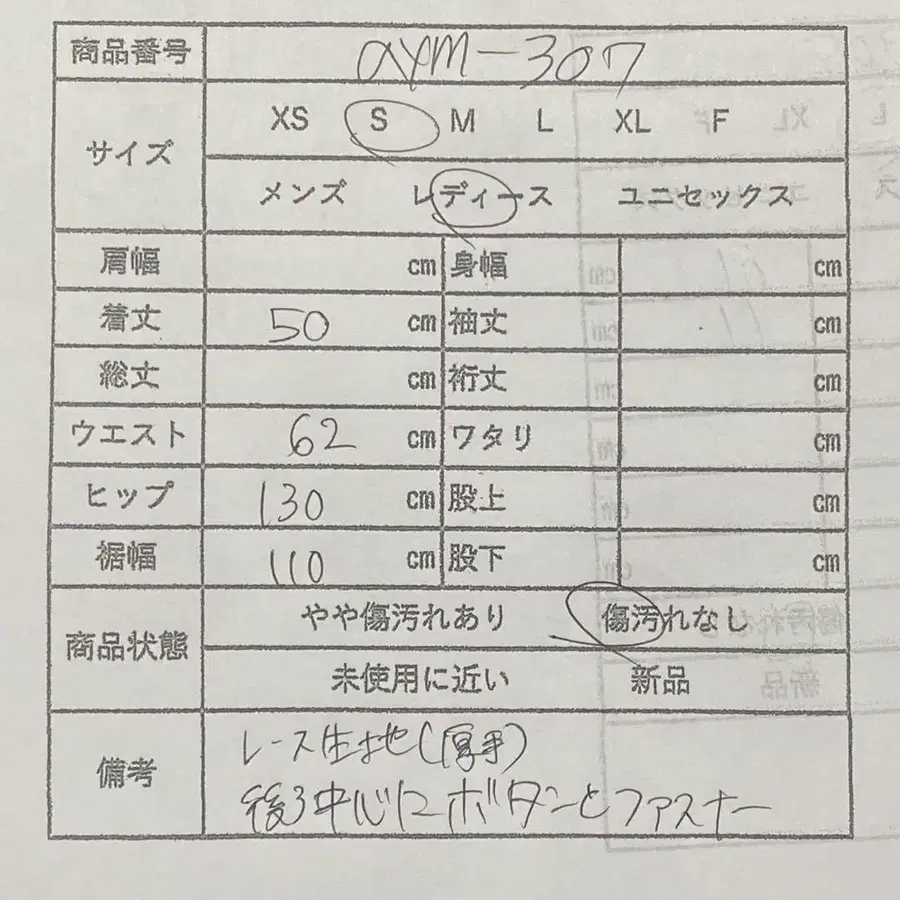 商品番号 aym-307
サイズ XS S M L XL F
メンズ レディース ユニセックス
肩幅 cm 身幅 cm
着丈 50 cm 袖丈 cm
総丈 cm 裄丈 cm
ウエスト 62 cm ワタリ cm
ヒップ 130 cm 股上 cm
裾幅 110 cm 股下 cm
商品状態 やや傷汚れあり 傷汚れなし
未使用に近い 新品
備考 レース生地(厚手)
後ろ中心にボタンとファスナー